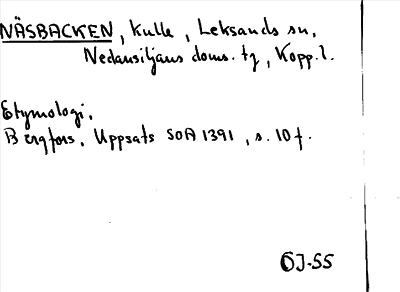 NÄSBACKEN, kulle, Leksands sn,
Nedansiljans doms. tg, Kopp. l.
Etymologi.
Bergfors, Uppsats SOA 1391, s. 10 f.
OJ-55